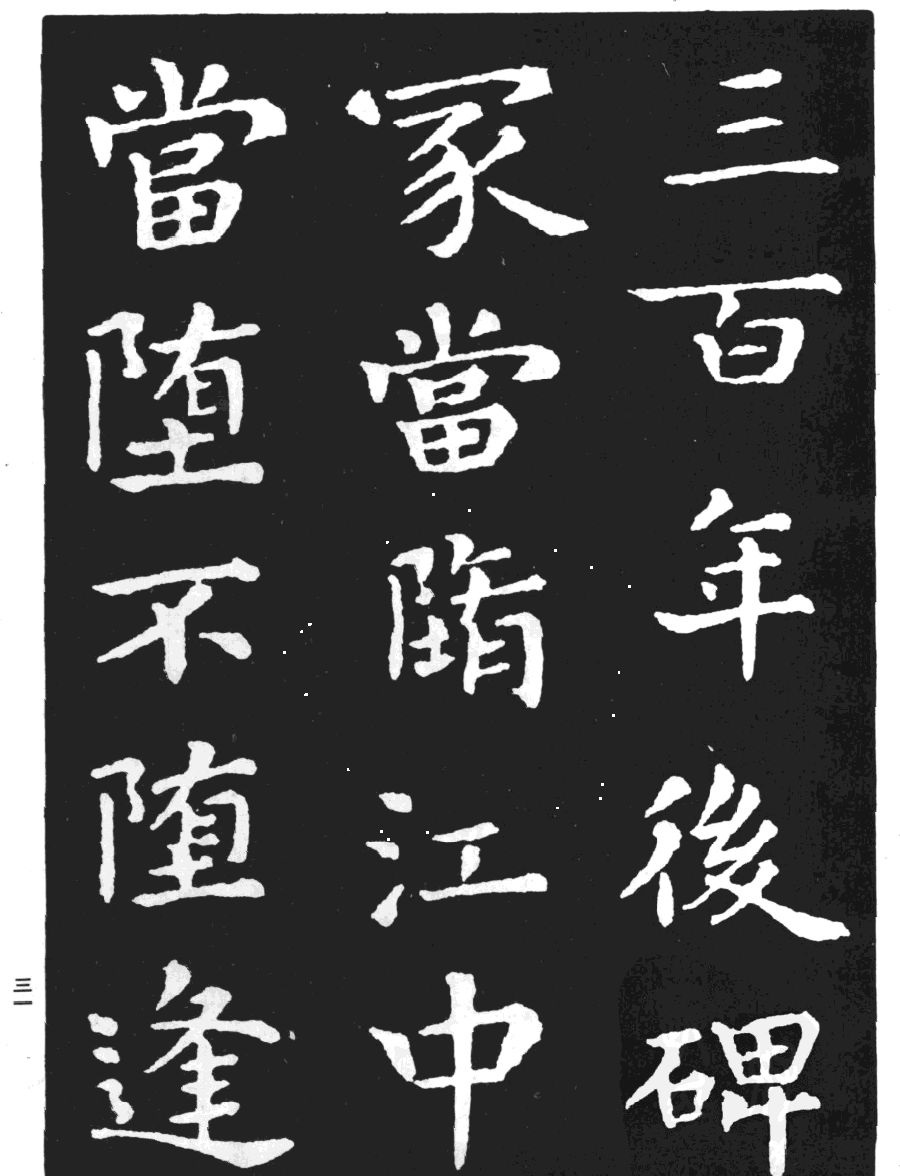 三百年後碑
冢當墮江中
當堕不堕逢
三二